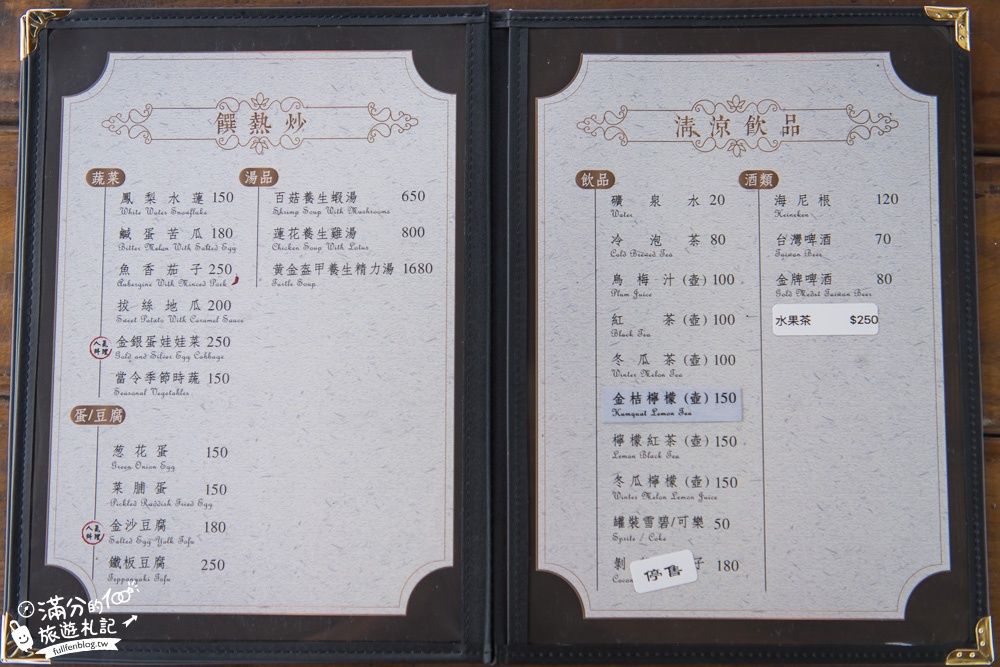 饌熱炒
蔬菜
鳳梨水蓮 150
White Water Snowflake
鹹蛋苦瓜 180
Bitter Melon With Salted Egg
魚香茄子 250
Aubergine With Minced Pork
拔絲地瓜 200
Sweet Potato With Caramel Sauce
人氣料理
金銀蛋娃娃菜 250
Gold and Silver Egg Cabbage
當令季節時蔬 150
Seasonal Vegetables
蛋/豆腐
葱花蛋 150
Green Onion Egg
菜脯蛋 150
Pickled Raddish Fried Egg
人氣料理
金沙豆腐 180
Salted Egg Yolk Tofu
鐵板豆腐 250
Teppanyaki Tofu
湯品
百菇養生蝦湯 650
Shrimp Soup With Mushrooms
蓮花養生雞湯 800
Chicken Soup With Lotus
黃金盔甲養生精力湯 1680
Turtle Soup
清涼飲品
飲品
礦泉水 20
Water
冷泡茶 80
Cold Brewed Tea
烏梅汁(壺)100
Plum Juice
紅茶(壺)100
Black Tea
冬瓜茶(壺)100
Winter Melon Tea
金桔檸檬(壺)150
Kumquat Lemon Tea
檸檬紅茶(壺)150
Lemon Black Tea
冬瓜檸檬(壺)150
Winter Melon Lemon Juice
罐裝雪碧/可樂 50
Sprite / Coke
剝 子 180
停售
酒類
海尼根 120
Heineken
台灣啤酒 70
Taiwan Beer
金牌啤酒 80
Gold Medal Taiwan Beer
水果茶 $250
滿分的100
旅遊札記
fullfenblog.tw